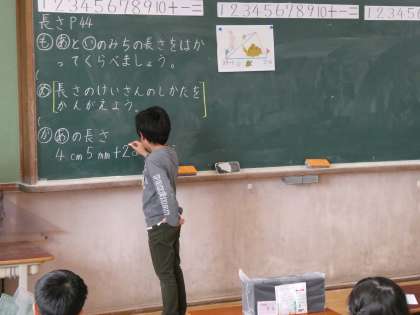 1234567890+-=
1234567890+-=
1234567
長さP44
も あと いのみちの長さをはか
ってくらべましょう。
め 長さのけいさんのしかたを
かんがえよう。
か あの長さ
4cm5mm+2